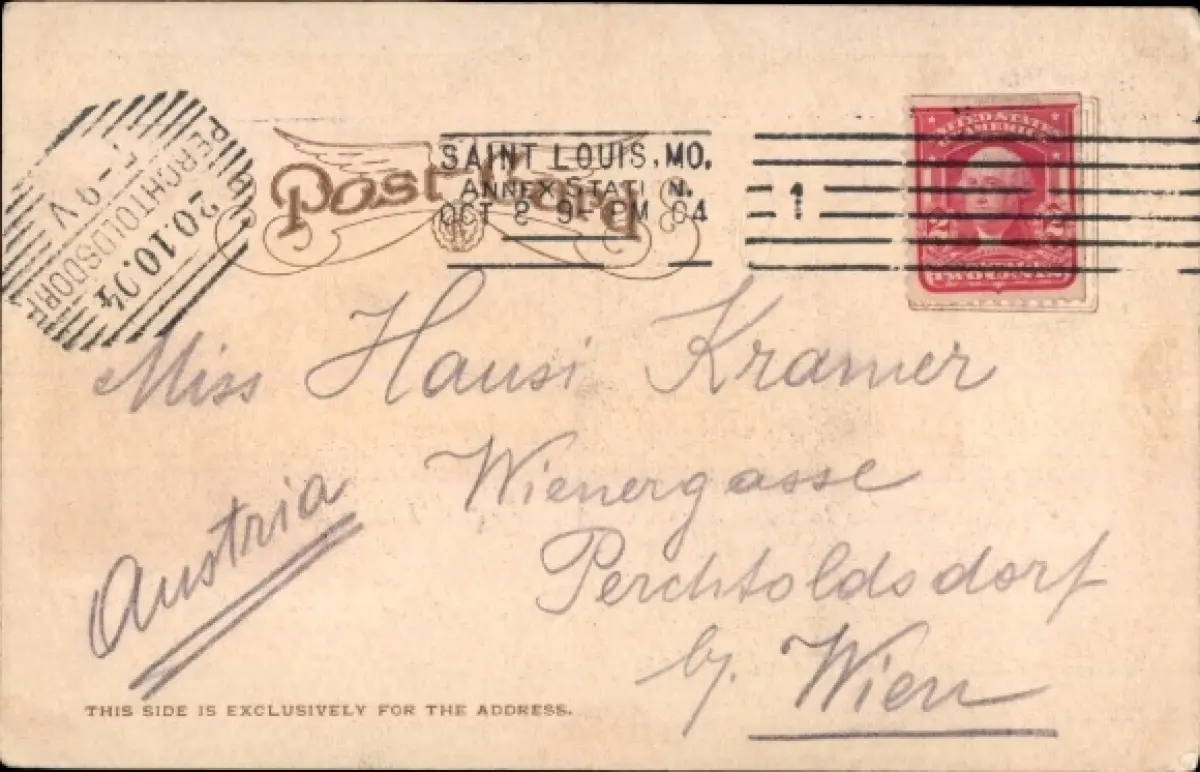 PERCHTOLDSDORF
20.10.04
-9.V
Post Card
SAINT LOUIS, MO.
ANNEX STATI N.
OCT 8 9- PM 04
1
UNITED STATES
OF AMERICA
2 2
TWO CENTS
Miss Hansi Kramer
Wienergasse
Perchtoldsdorf
by. Wien
Austria
THIS SIDE IS EXCLUSIVELY FOR THE ADDRESS.